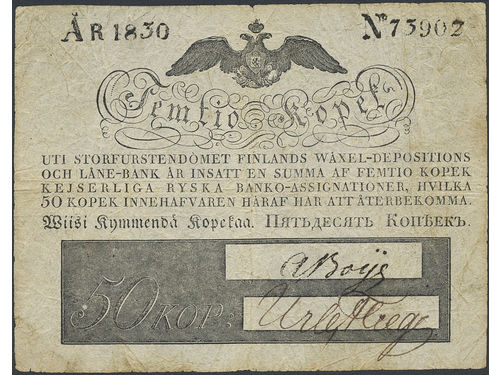 ÅR 1830 No 73902
Femtio Kopek
UTI STORFURSTENDÖMET FINLANDS WÄXEL-DEPOSITIONS
OCH LÅNE-BANK ÄR INSATT EN SUMMA AF FEMTIO KOPEK
KEJSERLIGA RYSKA BANKO-ASSIGNATIONER, HVILKA
50 KOPEK INNEHAFVAREN HÄRAF HAR ATT ÅTERBEKOMMA.
Wiisi Kymmendä Kopekaa. Пятьдесять Копѣекъ.
50 KOP: